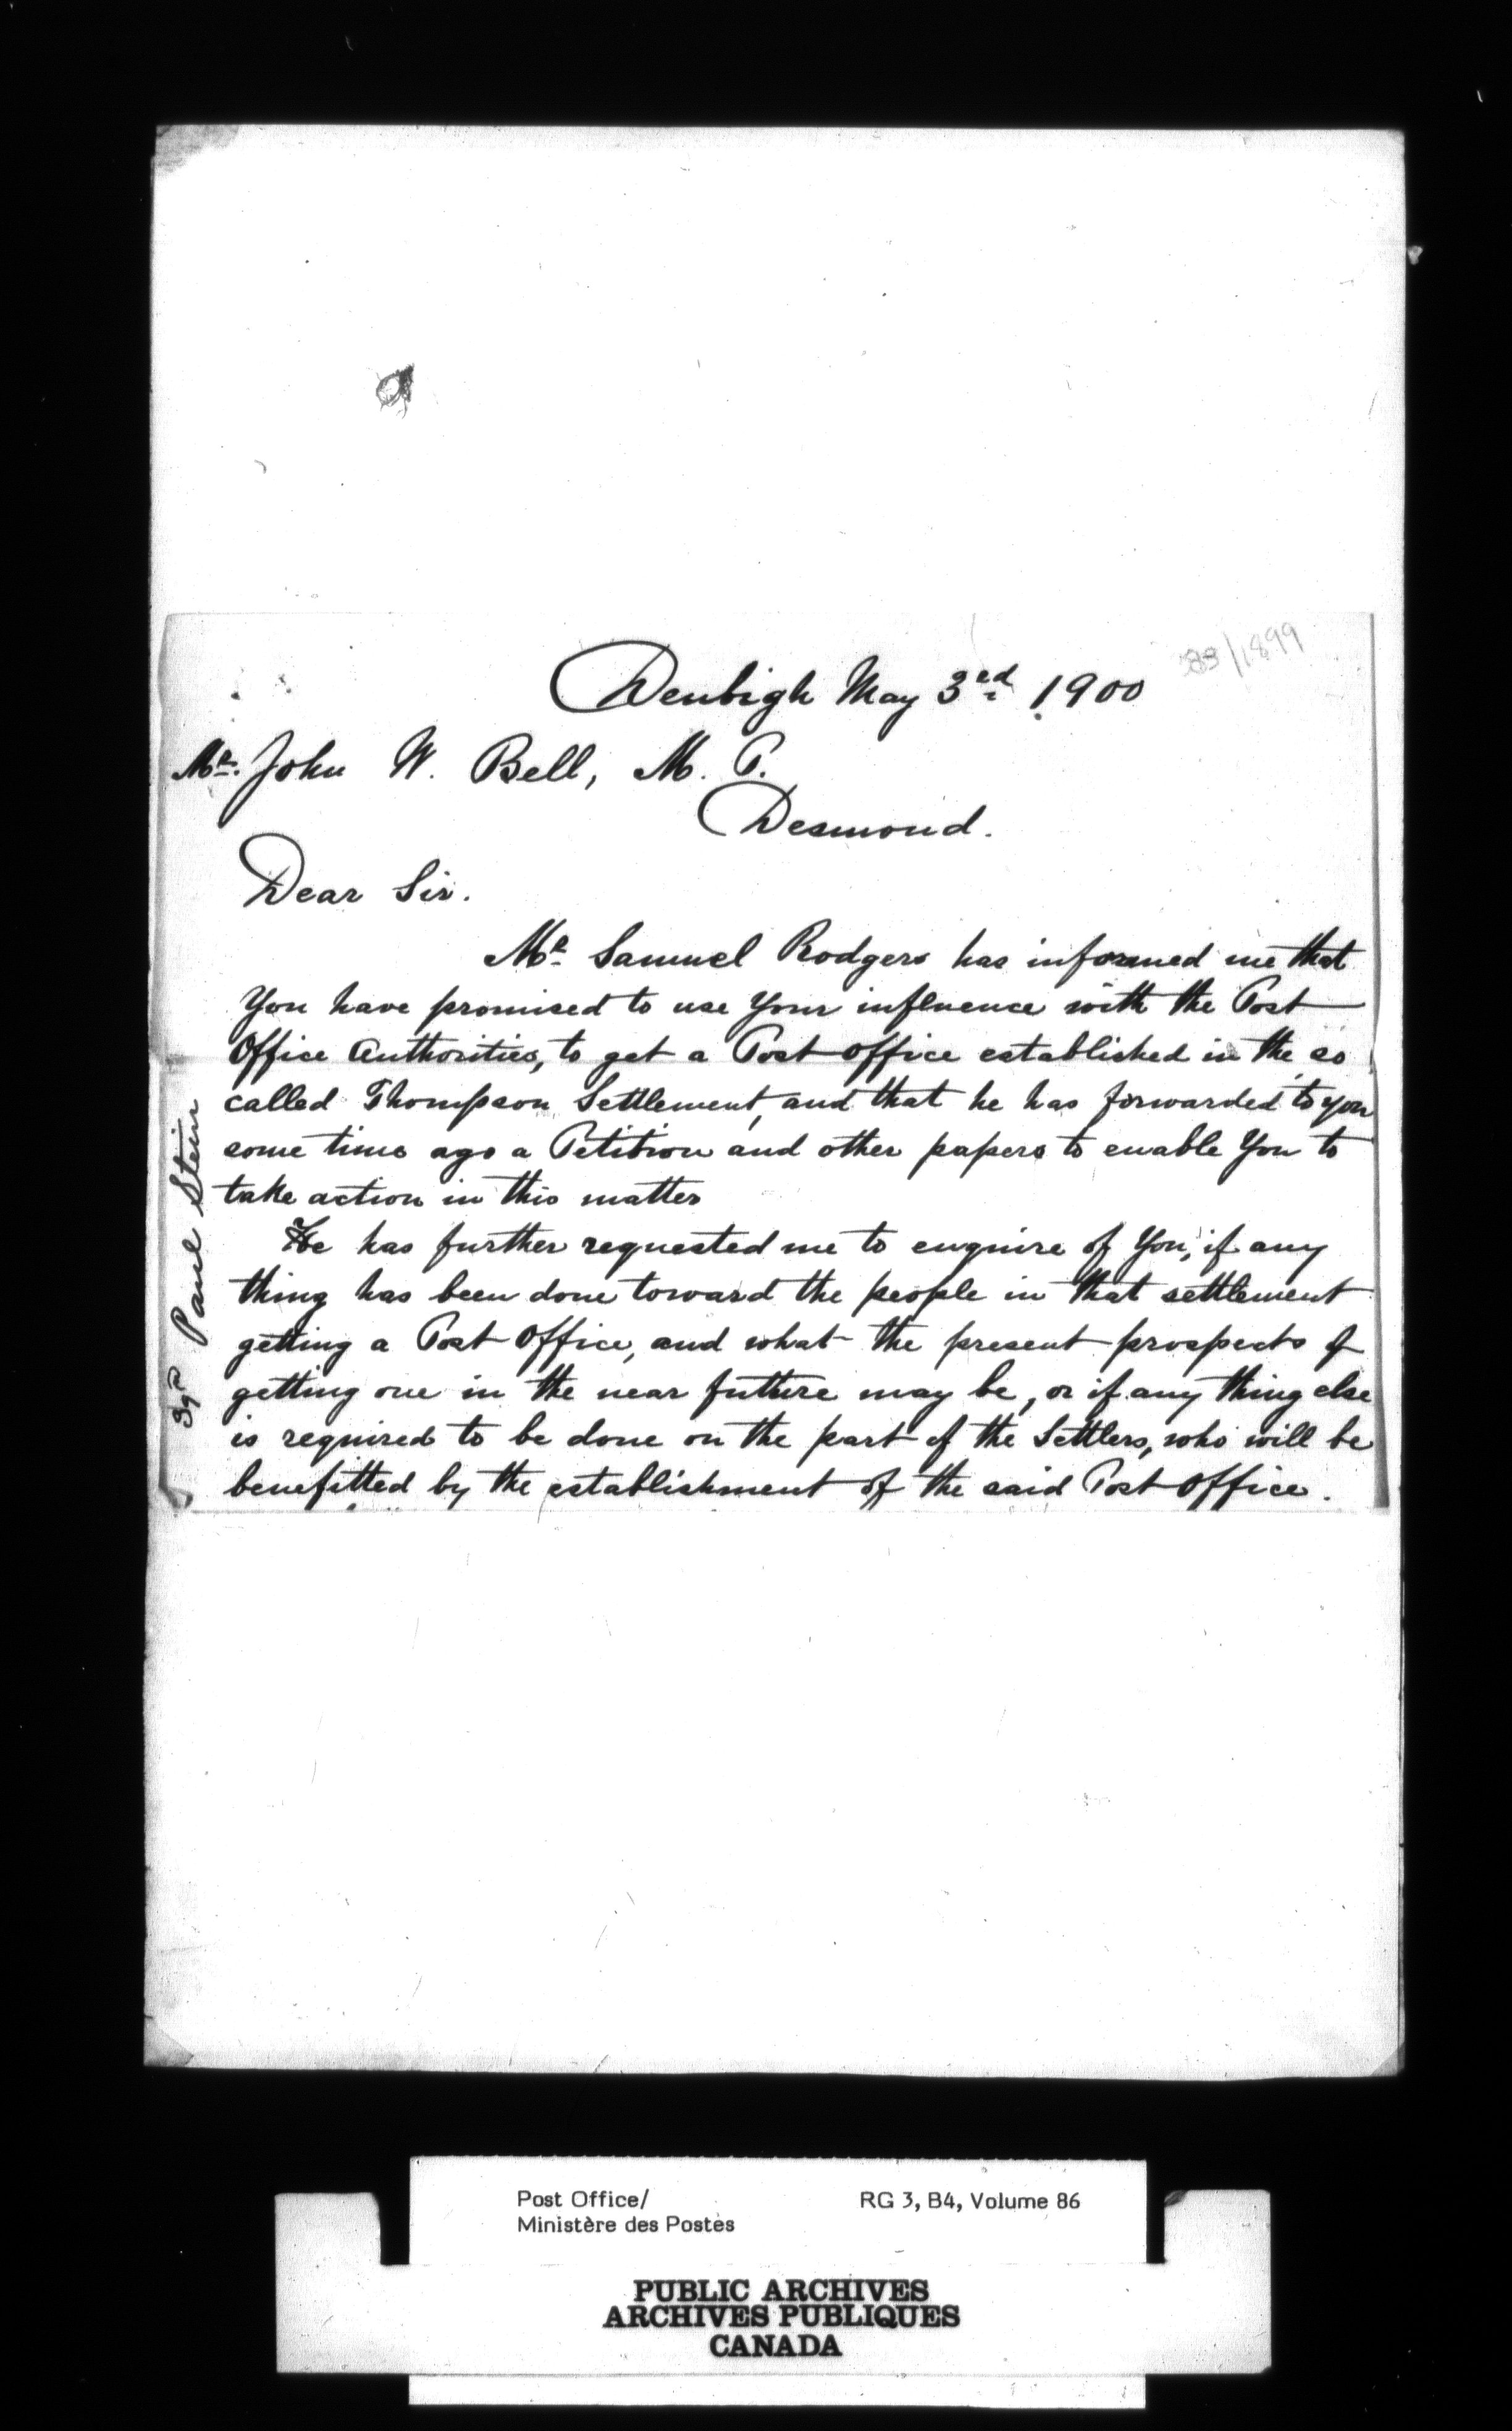 83/1899
Denbigh May 3rd 1900
Mr. John W. Bell, M. P.
Desmond.
Dear Sir.
Mr. Samuel Rodgers has informed me that
You have promised to use Your influence with the Post
Office Authorities, to get a Post office established in the so
called Thompson Settlement, and that he has forwarded to you
some time ago a Petition and other papers to enable You to
take action in this matter
He has further requested me to enquire of You, if any
thing has been done toward the people in that settlement
getting a Post Office, and what the present prospects of
getting one in the near future may be, or if any thing else
is required to be done on the part of the Settlers, who will be
benefitted by the establishment of the said Post Office.
Paul Stein
Post Office/
Ministère des Postes
RG 3, B4, Volume 86
PUBLIC ARCHIVES
ARCHIVES PUBLIQUES
CANADA